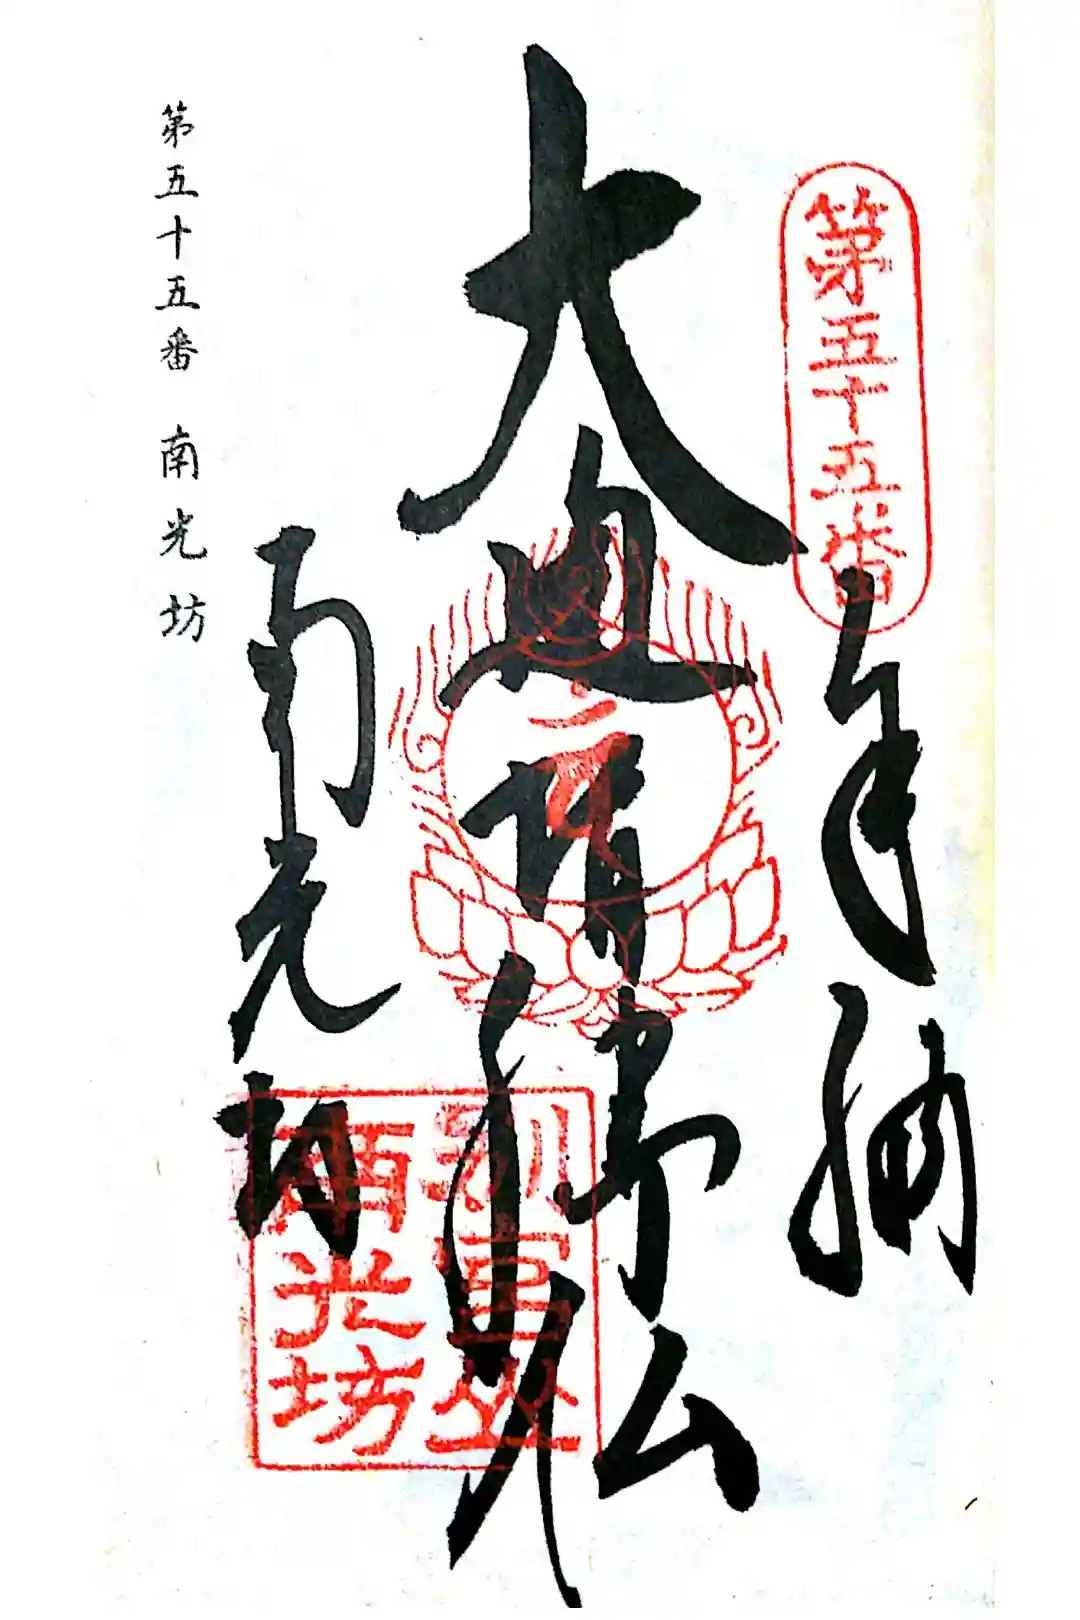 第五十五番
奉納
大通智勝仏
南光坊
別宮山
南光坊
第五十五番 南光坊